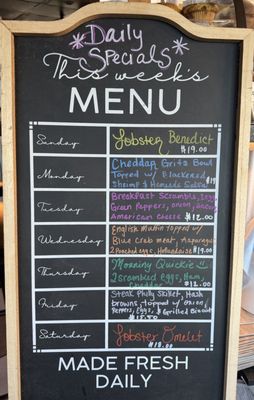 Daily
Specials
This week's
MENU
Sunday
Lobster Benedict
$19.00
Monday
Cheddar Grits Bowl
Topped w/ Blackened
Shrimp & Salsa $19
Tuesday
Breakfast Scramble, Egg
Green Peppers, onion, Bacon
American Cheese $12.00
Wednesday
English Muffin Topped w/
Blue Crab meat, Asparagus
2 Poached eggs, Hollandaise $19.00
Thursday
Morning Quickie
2 Scrambled Eggs, Ham,
Cheddar $12.00
Friday
Steak Philly Skillet, Hash
browns topped w/ onion,
Peppers, Eggs & Grilled Biscuit
Saturday
Lobster Omelet
$18.00
MADE FRESH
DAILY